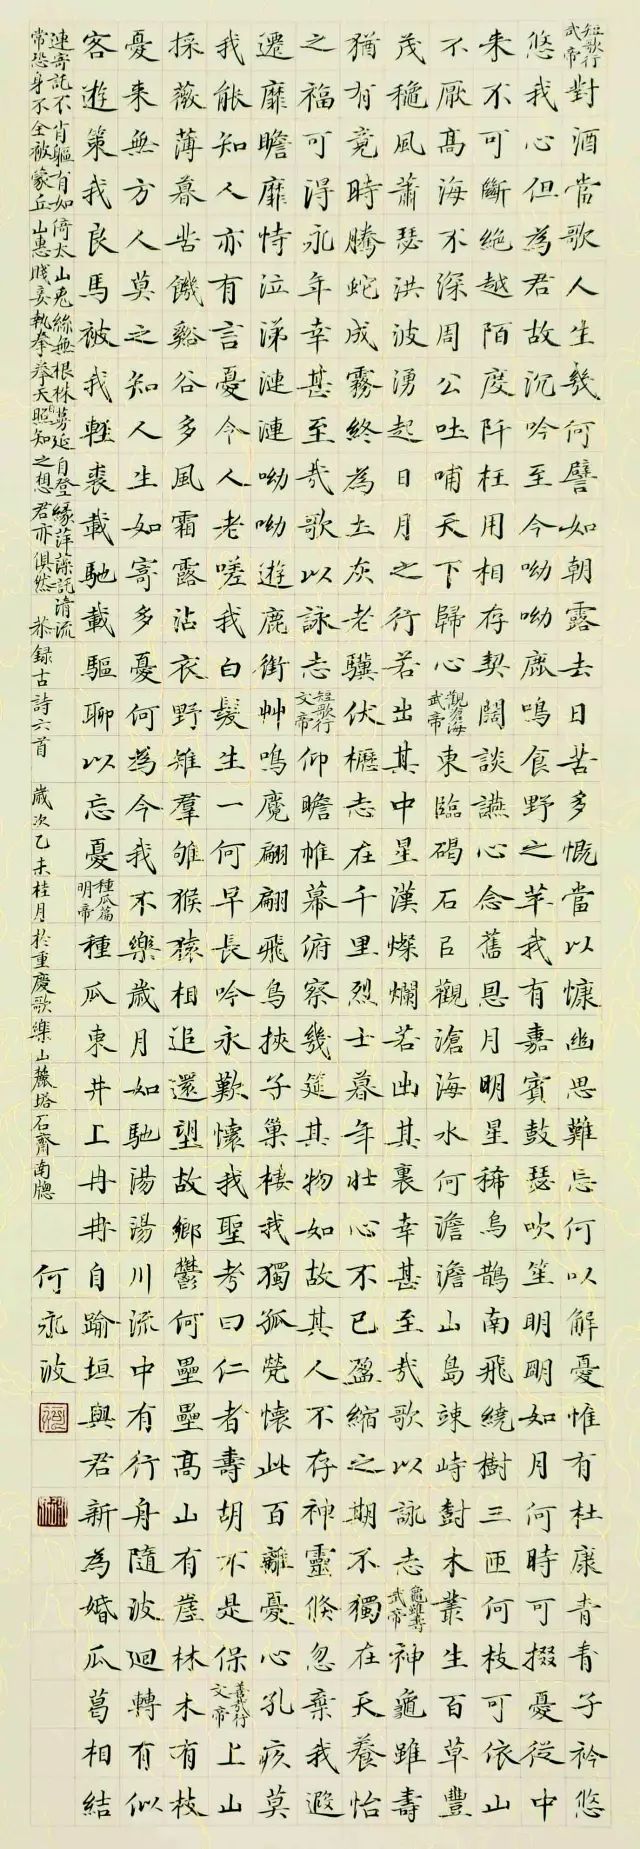 短歌行 武帝 對酒當歌人生幾何譬如朝露去日苦多慨當以慷幽思難忘何以解憂惟有杜康青青子衿悠
悠我心但為君故沉吟至今呦呦鹿鳴食野之苹我有嘉賓鼓瑟吹笙明明如月何時可掇憂從中
来不可斷絕越陌度阡枉用相存契闊談讌心念舊恩月明星稀烏鵲南飛繞樹三匝何枝可依山
不厭高海不深周公吐哺天下歸心 觀滄海 武帝 東臨碣石㠯觀滄海水何澹澹山島竦峙樹木叢生百草豐
茂穐風蕭瑟洪波湧起日月之行若出其中星漢燦爛若出其裏幸甚至哉歌以詠志 龜雖壽 武帝 神龜雖壽
猶有竟時騰蛇成霧終為土灰老驥伏櫪志在千里烈士暮年壯心不已盈縮之期不獨在天養怡
之福可得永年幸甚至哉歌以詠志 短歌行 文帝 仰瞻帷幕俯察幾筵其物如故其人不存神靈倏忽棄我遐
遷靡瞻靡恃泣涕漣漣呦呦遊鹿銜艸鳴麑翩翩飛鳥挾子巢棲我獨孤煢懷此百離憂心孔疚莫
我能知人亦有言憂令人老嗟我白髮生一何早長吟永歎懷我聖考曰仁者壽胡不是保 善哉行 文帝 上山
採薇薄暮苦饑谿谷多風霜露沾衣野雉羣雊猴猿相追還望故鄉鬱何壘壘高山有崖林木有枝
憂来無方人莫之知人生如寄多憂何為今我不樂歲月如馳湯湯川流中有行舟隨波迴轉有似
客遊策我良馬被我輕裘載馳載驅聊以忘憂 種瓜篇 明帝 種瓜東井上冉冉自踰垣與君新為婚瓜葛相結
連寄託不肖軀有如倚太山兎絲無根株蔓延自登緣萍藻託清流
常恐身不全被蒙丘山惠賤妾執拳拳天照知之想君亦俱然 恭錄古詩六首 歲次乙未桂月於重慶歌樂山麓塔石齋南牕
何永波